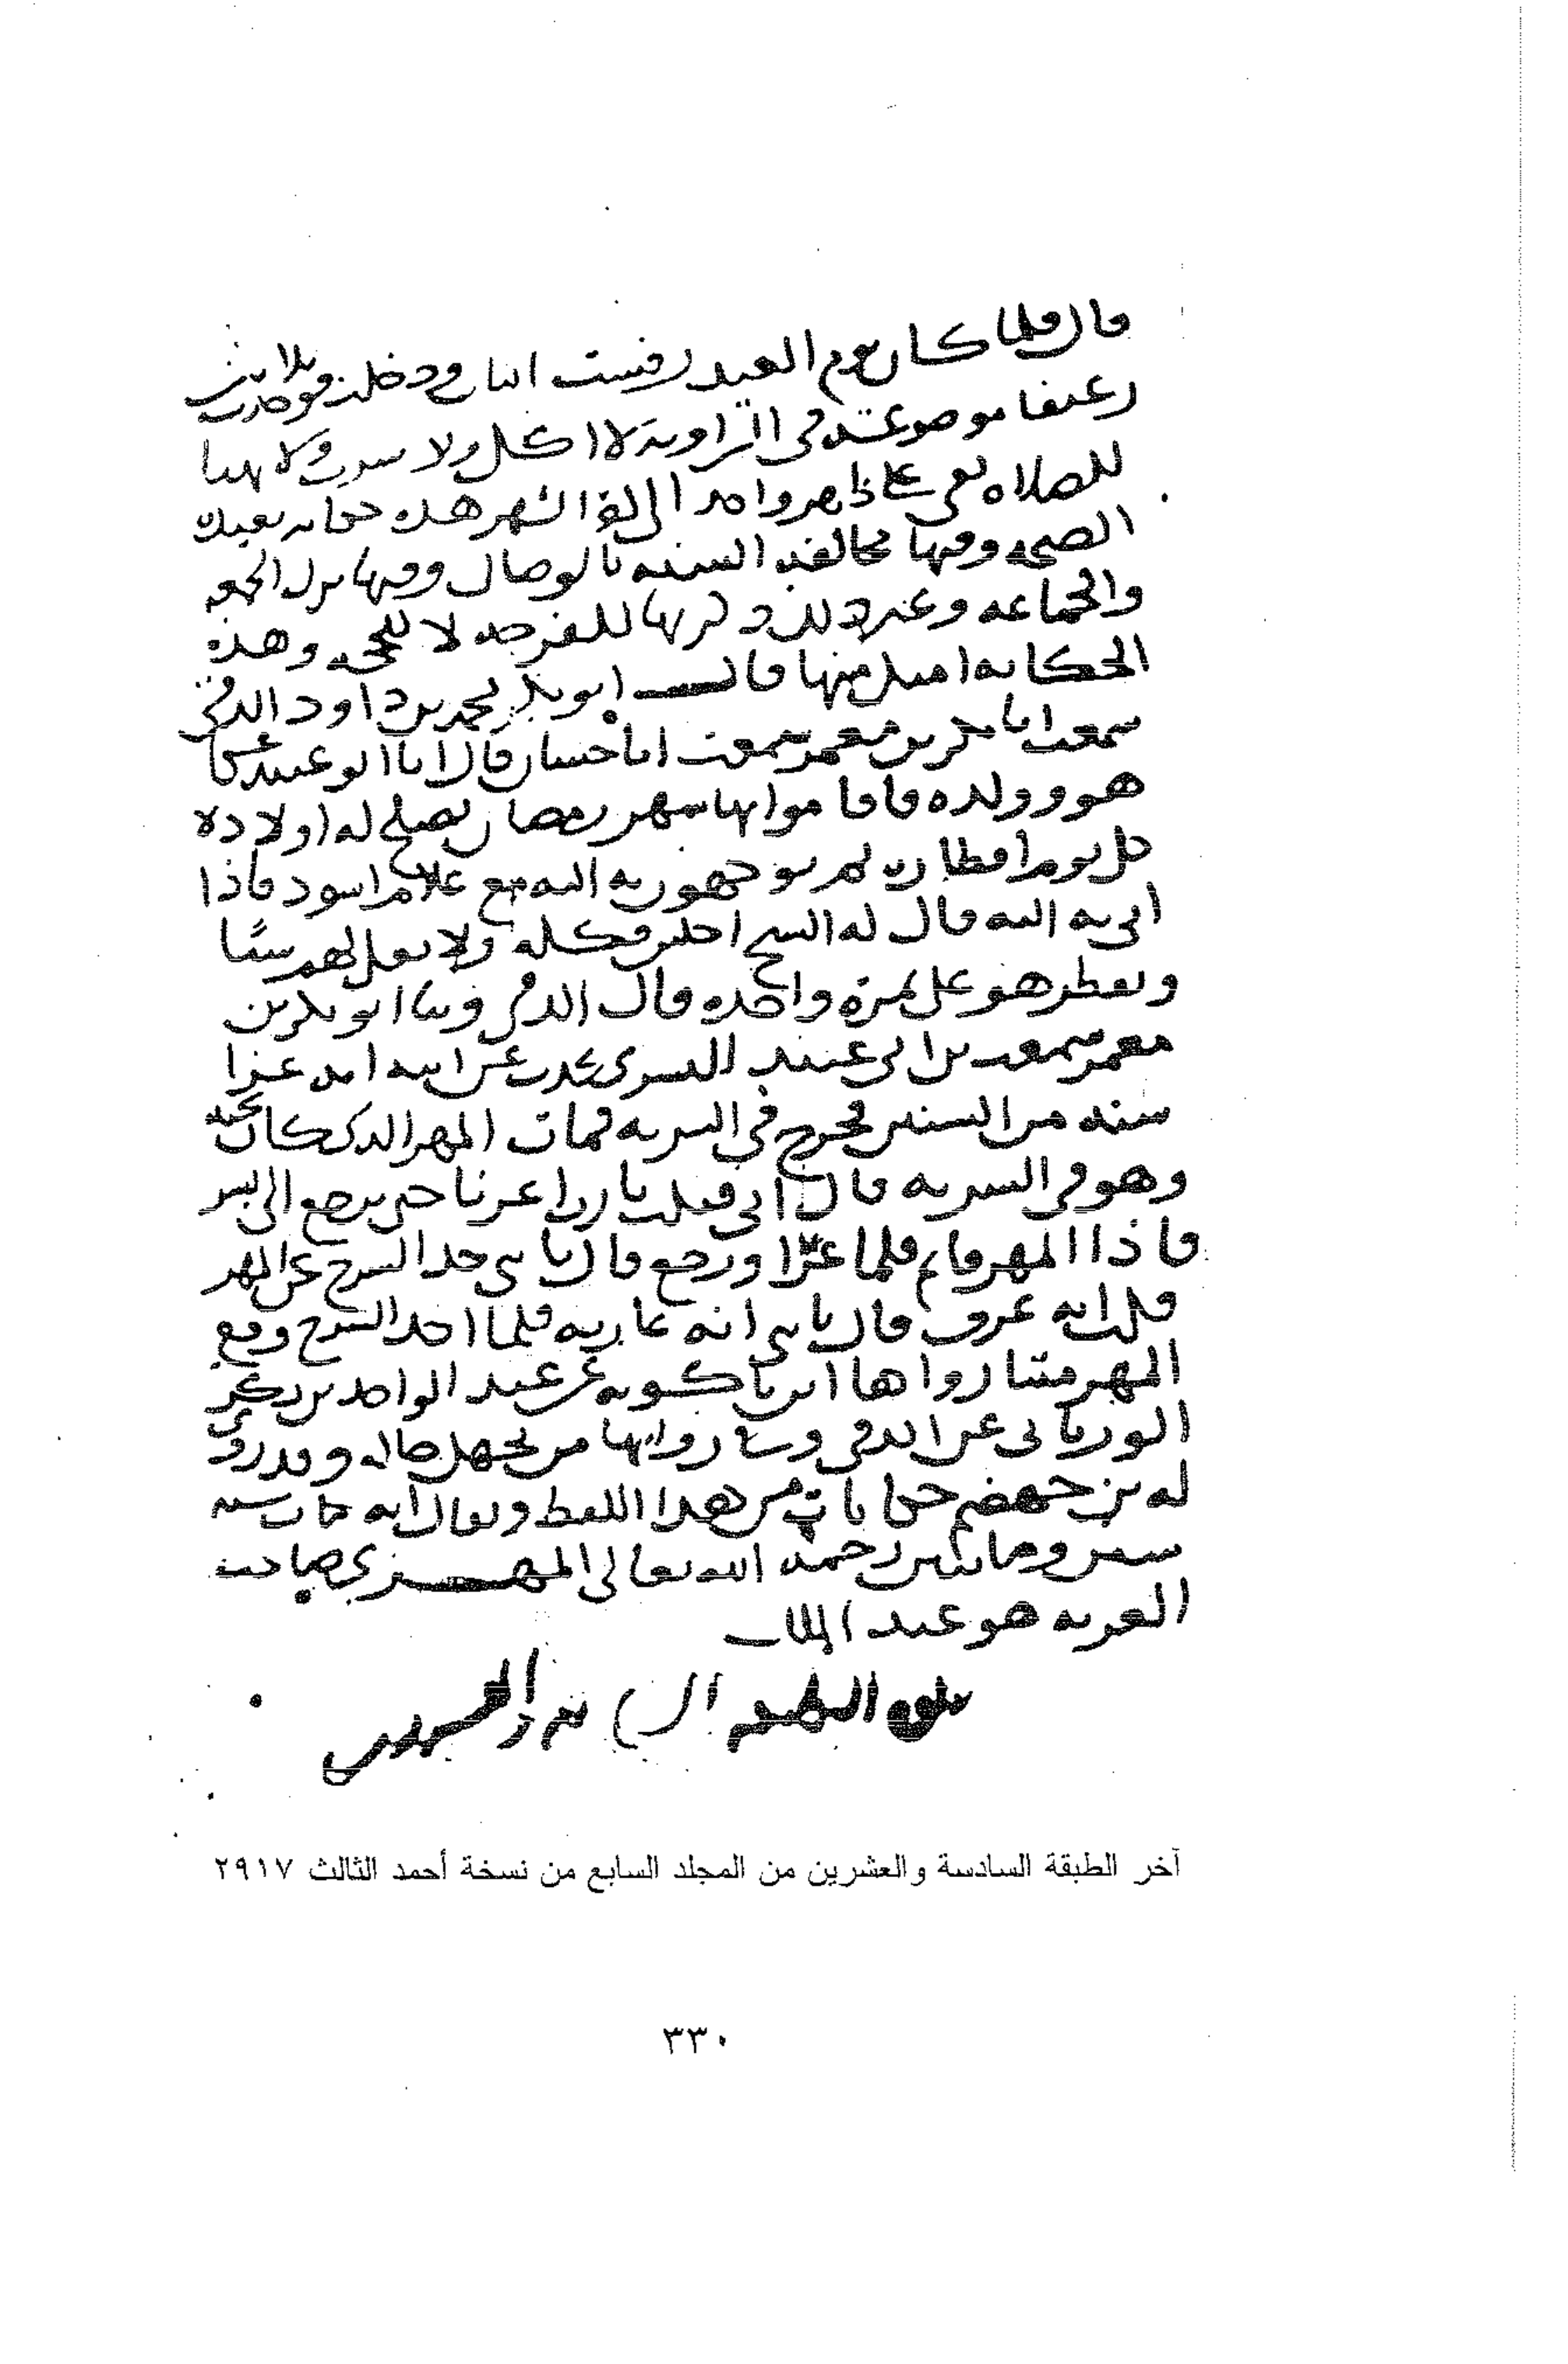 قال فلما كان يوم العيد رفست الباب ودخلت فوجدت ثلاثين
رغيفا موضوعة في الزاوية لا اكل ولا شرب ولا تهيأ
للصلاة بقي على طهر واحد الى آخر الشهر هذه حكاية بعيدة
الصحة وفيها مخالفة السنة بالوصال وفيها ترك الجمعة
والجماعة وغير ذلك ذكرتها للفرجة لا للحجة وهذه
الحكاية امثل منها قال ابو بكر محمد بن داود الدقي
سمعت ابا بكر بن معمر سمعت ابا حسان قال اتانا ابو عبيد
هو وولده فاقاموا بها شهر رمضان يصلح له اولاده
كل يوم افطاره ثم يوجهون به اليه مع غلام اسود فاذا
اتى به اليه قال له الشيخ اجلس فكله ولا تقل لهم شيئا
ويفطر هو على تمرة واحدة قال الدقي وثنا ابو بكر بن
معمر سمعت بن ابي عبيد البسري يحدث عن ابيه انه غزا
سنة من السنين فخرج في السرية فمات المهر الذي كان تحته
وهو في السرية قال ابي فقلت يا رب اعرنا حتى نرجع الى بسر
فاذا المهر قايم فلما غزا ورجع قال يا بني خذ السرج عن المهر
فقلت انه عرق قال يا بني انه عارية فلما اخذ السرج وقع
المهر ميتا رواها ابن باكويه عن عبد الواحد بن بكر
الورثاني عن الدقي وسا رواتها من يجهل حاله وقد روى
له بن جهضم حكايات من هذا النمط ويقال انه مات سنة
ستين ومائتين رحمه الله تعالى المهزي صاحب
العربية هو عبد الملك
آخر الطبقة السادسة والعشرين من المجلد السابع من نسخة أحمد الثالث ٢٩١٧
٣٣٠